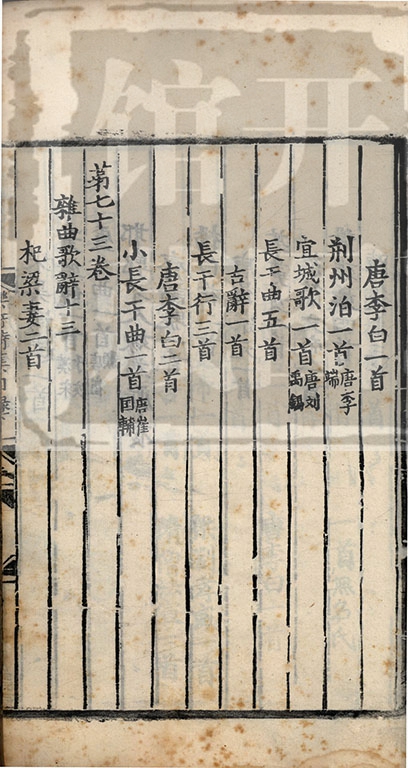 唐李白一首
荆州泊一首唐李端
宜城歌一首唐刘禹錫
長干曲五首
古辭一首
長干行三首
唐李白二首
小長干曲一首唐崔国輔
第七十三卷
雜曲歌辭十三
杞梁妻二首
开
馆